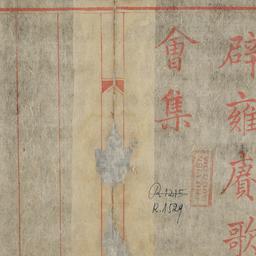 辟雍賡歌
會集
R.1215
R.1529